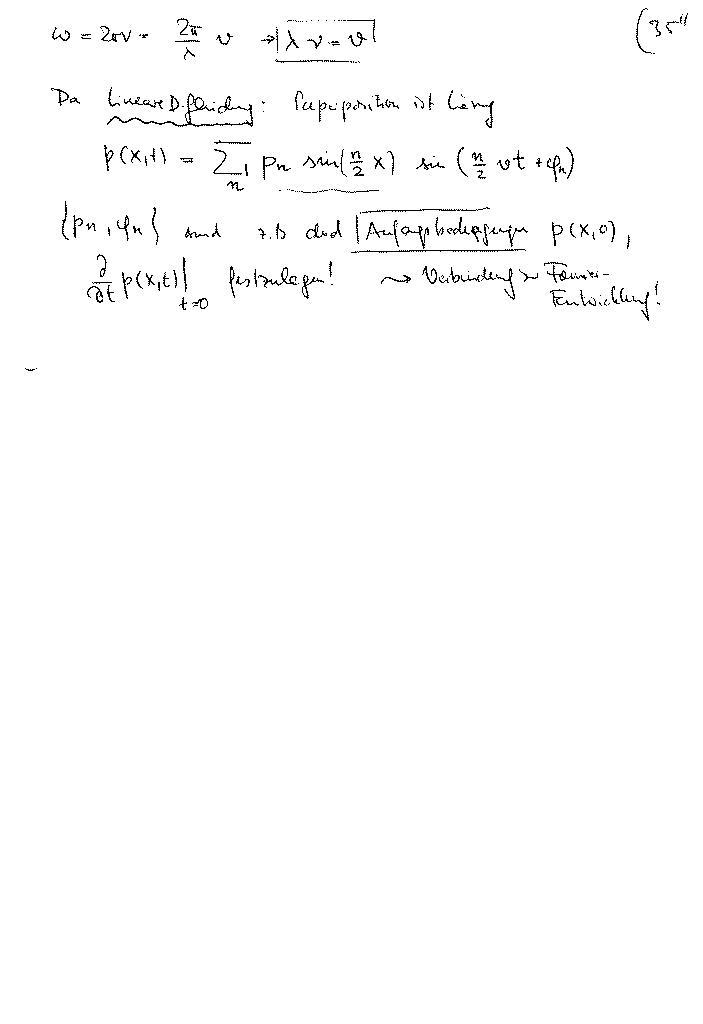 (35"
ω = 2πν = 2π/λ v → λ ν = v
Da lineare D.gleichung: Superposition ist Lösung
p(x,t) = ∑ₙ pₙ sin(n/2 x) sin (n/2 vt + φₙ)
{pₙ, φₙ} sind z.B durch Anfangsbedingungen p(x,0),
∂/∂t p(x,t)|ₜ₌₀ festzulegen! ⇝ Verbindung zu Fourier-
Entwicklung!